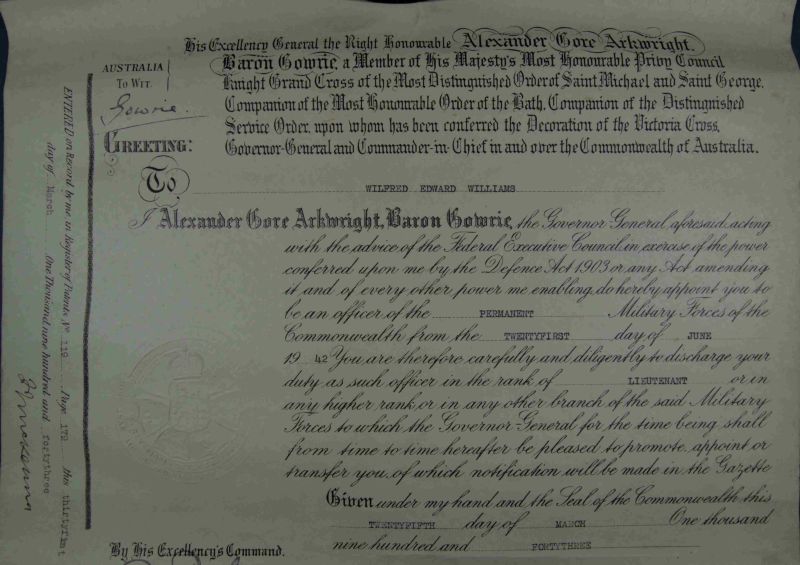 His Excellency General the Right Honourable Alexander Gore Arkwright,
Baron Gowrie, a Member of His Majesty's Most Honourable Privy Council
Knight Grand Cross of the Most Distinguished Order of Saint Michael and Saint George,
Companion of the Most Honourable Order of the Bath, Companion of the Distinguished
Service Order, upon whom has been conferred the Decoration of the Victoria Cross,
Governor-General and Commander-in-Chief in and over the Commonwealth of Australia.
AUSTRALIA
TO WIT.
Gowrie.
GREETING:
To WILFRED EDWARD WILLIAMS
I Alexander Gore Arkwright, Baron Gowrie, the Governor General, aforesaid, acting
with the advice of the Federal Executive Council, in exercise of the power
conferred upon me by the Defence Act 1903 or any Act amending
it and of every other power me enabling, do hereby appoint you to
be an officer of the PERMANENT Military Forces of the
Commonwealth from the TWENTYFIRST day of JUNE
19 42 You are therefore carefully and diligently to discharge your
duty as such officer in the rank of LIEUTENANT or in
any higher rank, or in any other branch of the said Military
Forces to which the Governor-General for the time being shall
from time to time hereafter be pleased to promote, appoint or
transfer you, of which notification will be made in the Gazette
Given under my hand and the Seal of the Commonwealth this
TWENTYFIFTH day of MARCH One thousand
nine hundred and FORTYTHREE
By His Excellency's Command.
ENTERED on Record by me in Register of Patents No 119 Page 179 this thirtyfirst
day of March One Thousand nine hundred and fortythree